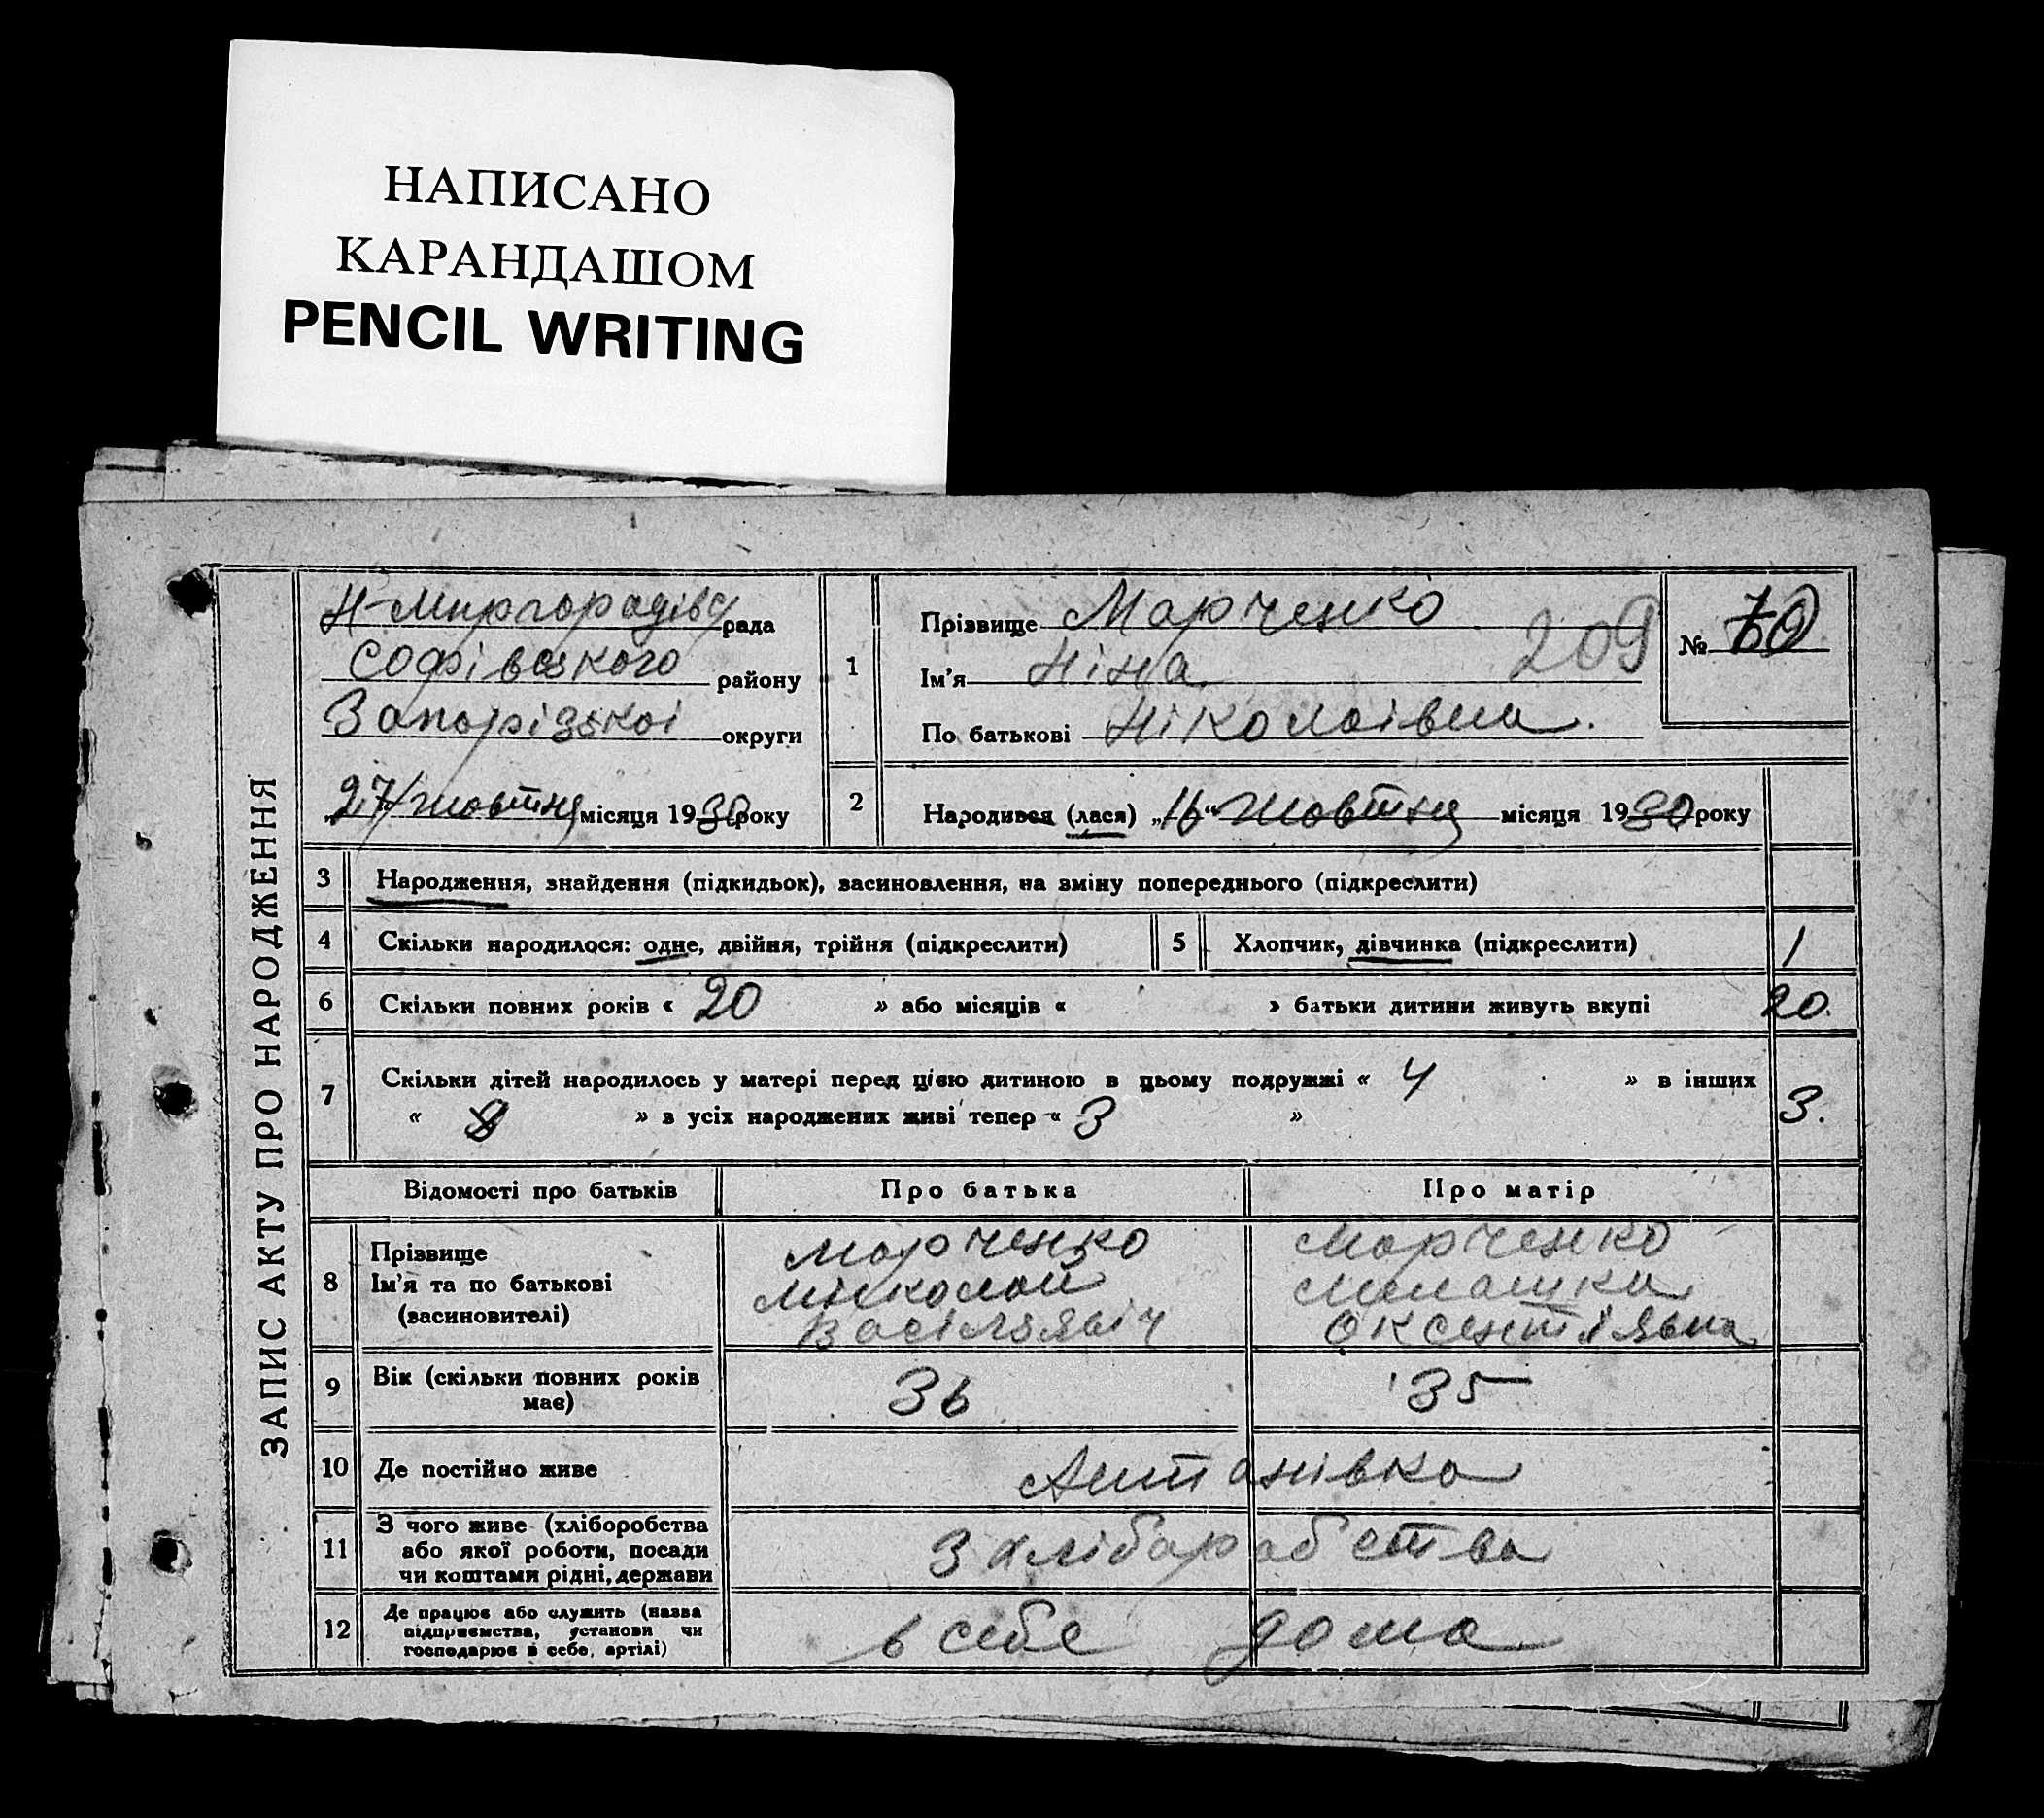 НАПИСАНО
КАРАНДАШОМ
PENCIL WRITING
ЗАПИС АКТУ ПРО НАРОДЖЕННЯ
Н-Миргородівс рада
Софієвського району
Запорізкоі округи
„27" жовтня місяця 1930 року
1
Прізвище Марченко
Ім'я Ніна 209
По батькові Ніколаівна.
№ 70
2 Народився (лася) „16" жовтня місяця 1930 року
3 Народження, знайдення (підкидьок), васиновлення, на зміну попереднього (підкреслити)
4 Скільки народилося: одне, двійня, трійня (підкреслити) 5 Хлопчик, дівчинка (підкреслити) 1
6 Скільки повних років « 20 » або місяців « » батьки дитини живуть вкупі 20.
7 Скільки дітей народилось у матері перед цією дитиною в цьому подружжі « 4 » в інших
« » з усіх народжених живі тепер « 3 » 3.
Відомості про батьків Про батька Про матір
8
Прізвище Марченко Марченко
Ім'я та по батькові Миколай Мелашка
(васиновителі) Васілявіч Оксентіявна
9 Вік (скільки повних років 36 35
має)
10 Де постійно живе Антанівка
11
З чого живе (хліборобства
або якої роботи, посади З хлібарабства
чи коштами рідні, держави
12
Де працює або служить (назва
підприємства, установи чи в себе дома
господарює в себе, артілі)